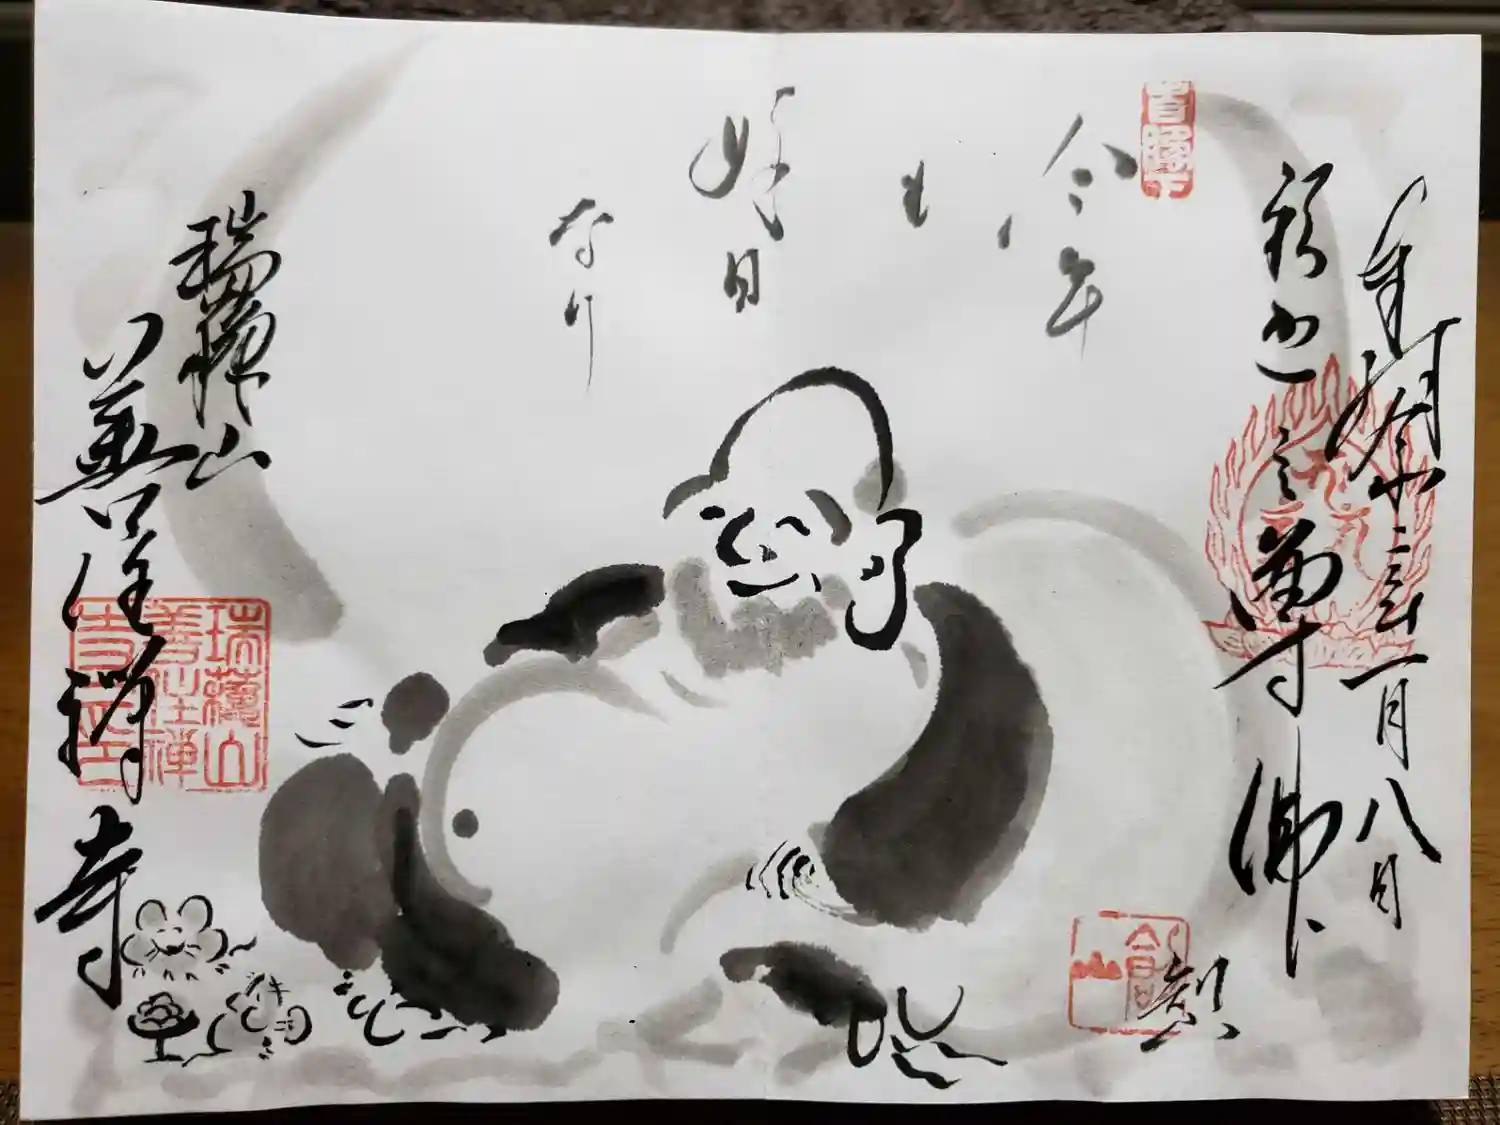 奉拝 令和二年一月八日
釈迦三尊佛
今年
も
好日
なり
瑞穂山
善住禅寺
瑞穂山
善住禅
寺之印